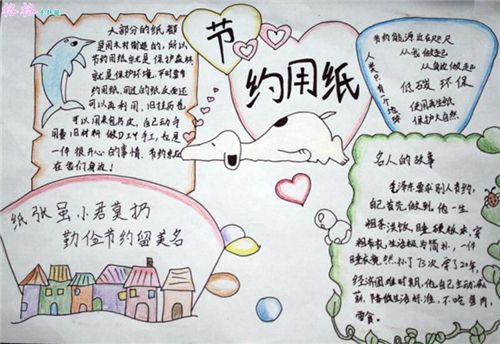 格格
大部分的纸都
是用木材制造的，所以
节约用纸就是保护森林
就是保护环境。平时要节
约用纸，用过的纸反面还
可以再利用，旧挂历也
可以用来包书皮，自己动手
用费旧材料做DIY手工，也是
一件很开心的事情，节约来
在我们身边！
节
约用纸
节约能源近在咫尺
从我做起
从身边做起
低碳环保
使用再生纸
保护大自然
人类只有一个地球
纸张虽小君莫扔
勤俭节约留美名
名人的故事
毛泽东要求别人节约，
自己首先做到，他一生
粗茶淡饭，睡硬板床，穿
粗布衣，生活极为简朴，一件
睡衣竟然补了73次穿了20年。
经济困难时期，他自己主动减
薪，降低生活标准，不吃鱼肉，
零食。